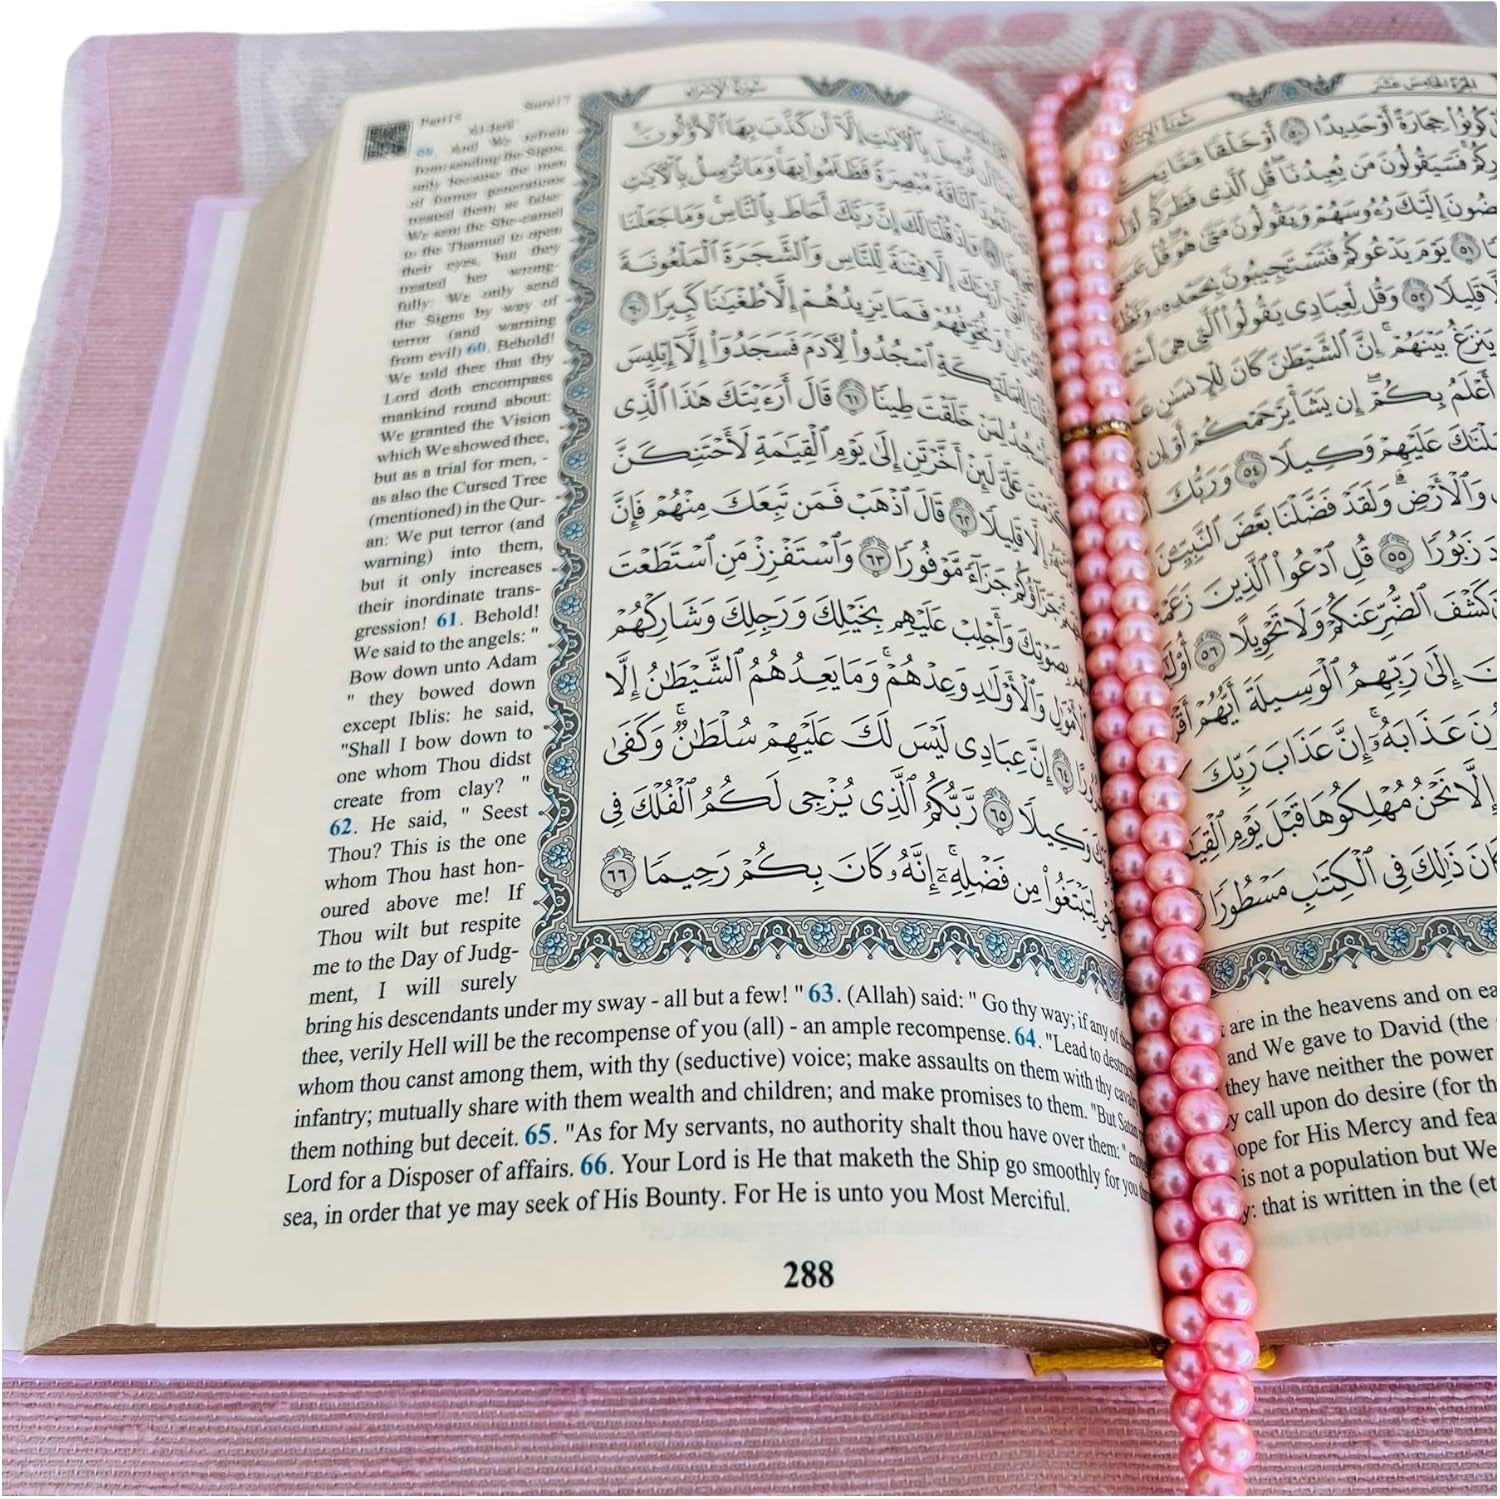 Part15 Sura17
Al-Isra
59. And We refrain
from sending the Signs,
only because the men
of former generations
treated them as false:
We sent the She-camel
to the Thamud to open
their eyes, but they
treated her wrong-
fully: We only send
the Signs by way of
terror (and warning
from evil) 60. Behold!
We told thee that thy
Lord doth encompass
mankind round about:
We granted the Vision
which We showed thee,
but as a trial for men, -
as also the Cursed Tree
(mentioned) in the Qur-
an: We put terror (and
warning) into them,
but it only increases
their inordinate trans-
gression! 61. Behold!
We said to the angels: "
Bow down unto Adam
" they bowed down
except Iblis: he said,
"Shall I bow down to
one whom Thou didst
create from clay? "
62. He said, " Seest
Thou? This is the one
whom Thou hast hon-
oured above me! If
Thou wilt but respite
me to the Day of Judg-
ment, I will surely
bring his descendants under my sway - all but a few! " 63. (Allah) said: " Go thy way; if any of them
thee, verily Hell will be the recompense of you (all) - an ample recompense. 64. "Lead to
whom thou canst among them, with thy (seductive) voice; make assaults on them with thy
infantry; mutually share with them wealth and children; and make promises to them. "But Satan
them nothing but deceit. 65. "As for My servants, no authority shalt thou have over them:"
Lord for a Disposer of affairs. 66. Your Lord is He that maketh the Ship go smoothly for you
sea, in order that ye may seek of His Bounty. For He is unto you Most Merciful.
288
سُورَةُ الْإِسْرَاءِ
نُّرْسِلَ بِٱلْءَايَٰتِ إِلَّآ أَن كَذَّبَ بِهَا ٱلْأَوَّلُونَ
ٱلنَّاقَةَ مُبْصِرَةً فَظَلَمُوا۟ بِهَا وَمَا نُرْسِلُ بِٱلْءَايَٰتِ
وَإِذْ قُلْنَا لَكَ إِنَّ رَبَّكَ أَحَاطَ بِٱلنَّاسِ وَمَا جَعَلْنَا
أَرَيْنَٰكَ إِلَّا فِتْنَةً لِّلنَّاسِ وَٱلشَّجَرَةَ ٱلْمَلْعُونَةَ
وَنُخَوِّفُهُمْ فَمَا يَزِيدُهُمْ إِلَّا طُغْيَٰنًا كَبِيرًا ٦٠
لِلْمَلَٰٓئِكَةِ ٱسْجُدُوا۟ لِءَادَمَ فَسَجَدُوٓا۟ إِلَّآ إِبْلِيسَ
ءَأَسْجُدُ لِمَنْ خَلَقْتَ طِينًا ٦١ قَالَ أَرَءَيْتَكَ هَٰذَا ٱلَّذِى
كَرَّمْتَ عَلَىَّ لَئِنْ أَخَّرْتَنِ إِلَىٰ يَوْمِ ٱلْقِيَٰمَةِ لَأَحْتَنِكَنَّ
إِلَّا قَلِيلًا ٦٢ قَالَ ٱذْهَبْ فَمَن تَبِعَكَ مِنْهُمْ فَإِنَّ
جَزَآؤُكُمْ جَزَآءً مَّوْفُورًا ٦٣ وَٱسْتَفْزِزْ مَنِ ٱسْتَطَعْتَ
بِصَوْتِكَ وَأَجْلِبْ عَلَيْهِم بِخَيْلِكَ وَرَجِلِكَ وَشَارِكْهُمْ
ٱلْأَمْوَٰلِ وَٱلْأَوْلَٰدِ وَعِدْهُمْ وَمَا يَعِدُهُمُ ٱلشَّيْطَٰنُ إِلَّا
٦٤ إِنَّ عِبَادِى لَيْسَ لَكَ عَلَيْهِمْ سُلْطَٰنٌ وَكَفَىٰ
وَكِيلًا ٦٥ رَّبُّكُمُ ٱلَّذِى يُزْجِى لَكُمُ ٱلْفُلْكَ فِى
لِتَبْتَغُوا۟ مِن فَضْلِهِۦٓ إِنَّهُۥ كَانَ بِكُمْ رَحِيمًا ٦٦
الجزء الخامس عشر
كُونُوا۟ حِجَارَةً أَوْ حَدِيدًا ٥٠ أَوْ خَلْقًا مِّمَّا
فَسَيَقُولُونَ مَن يُعِيدُنَا قُلِ ٱلَّذِى فَطَرَكُمْ أَوَّلَ
إِلَيْكَ رُءُوسَهُمْ وَيَقُولُونَ مَتَىٰ هُوَ قُلْ
٥١ يَوْمَ يَدْعُوكُمْ فَتَسْتَجِيبُونَ بِحَمْدِهِۦ
قَلِيلًا ٥٢ وَقُل لِّعِبَادِى يَقُولُوا۟ ٱلَّتِى هِىَ
يَنزَغُ بَيْنَهُمْ إِنَّ ٱلشَّيْطَٰنَ كَانَ لِلْإِنسَٰنِ
أَعْلَمُ بِكُمْ إِن يَشَأْ يَرْحَمْكُمْ أَوْ إِن
عَلَيْهِمْ وَكِيلًا ٥٤ وَرَبُّكَ
وَٱلْأَرْضِ وَلَقَدْ فَضَّلْنَا بَعْضَ ٱلنَّبِيِّۦنَ
زَبُورًا ٥٥ قُلِ ٱدْعُوا۟ ٱلَّذِينَ
كَشْفَ ٱلضُّرِّ عَنكُمْ وَلَا تَحْوِيلًا ٥٦
إِلَىٰ رَبِّهِمُ ٱلْوَسِيلَةَ أَيُّهُمْ
عَذَابَهُۥٓ إِنَّ عَذَابَ رَبِّكَ
إِلَّا نَحْنُ مُهْلِكُوهَا قَبْلَ يَوْمِ
ذَٰلِكَ فِى ٱلْكِتَٰبِ مَسْطُورًا
are in the heavens and on
and We gave to David (the
they have neither the power
call upon do desire (for
for His Mercy and
is not a population but We
that is written in the